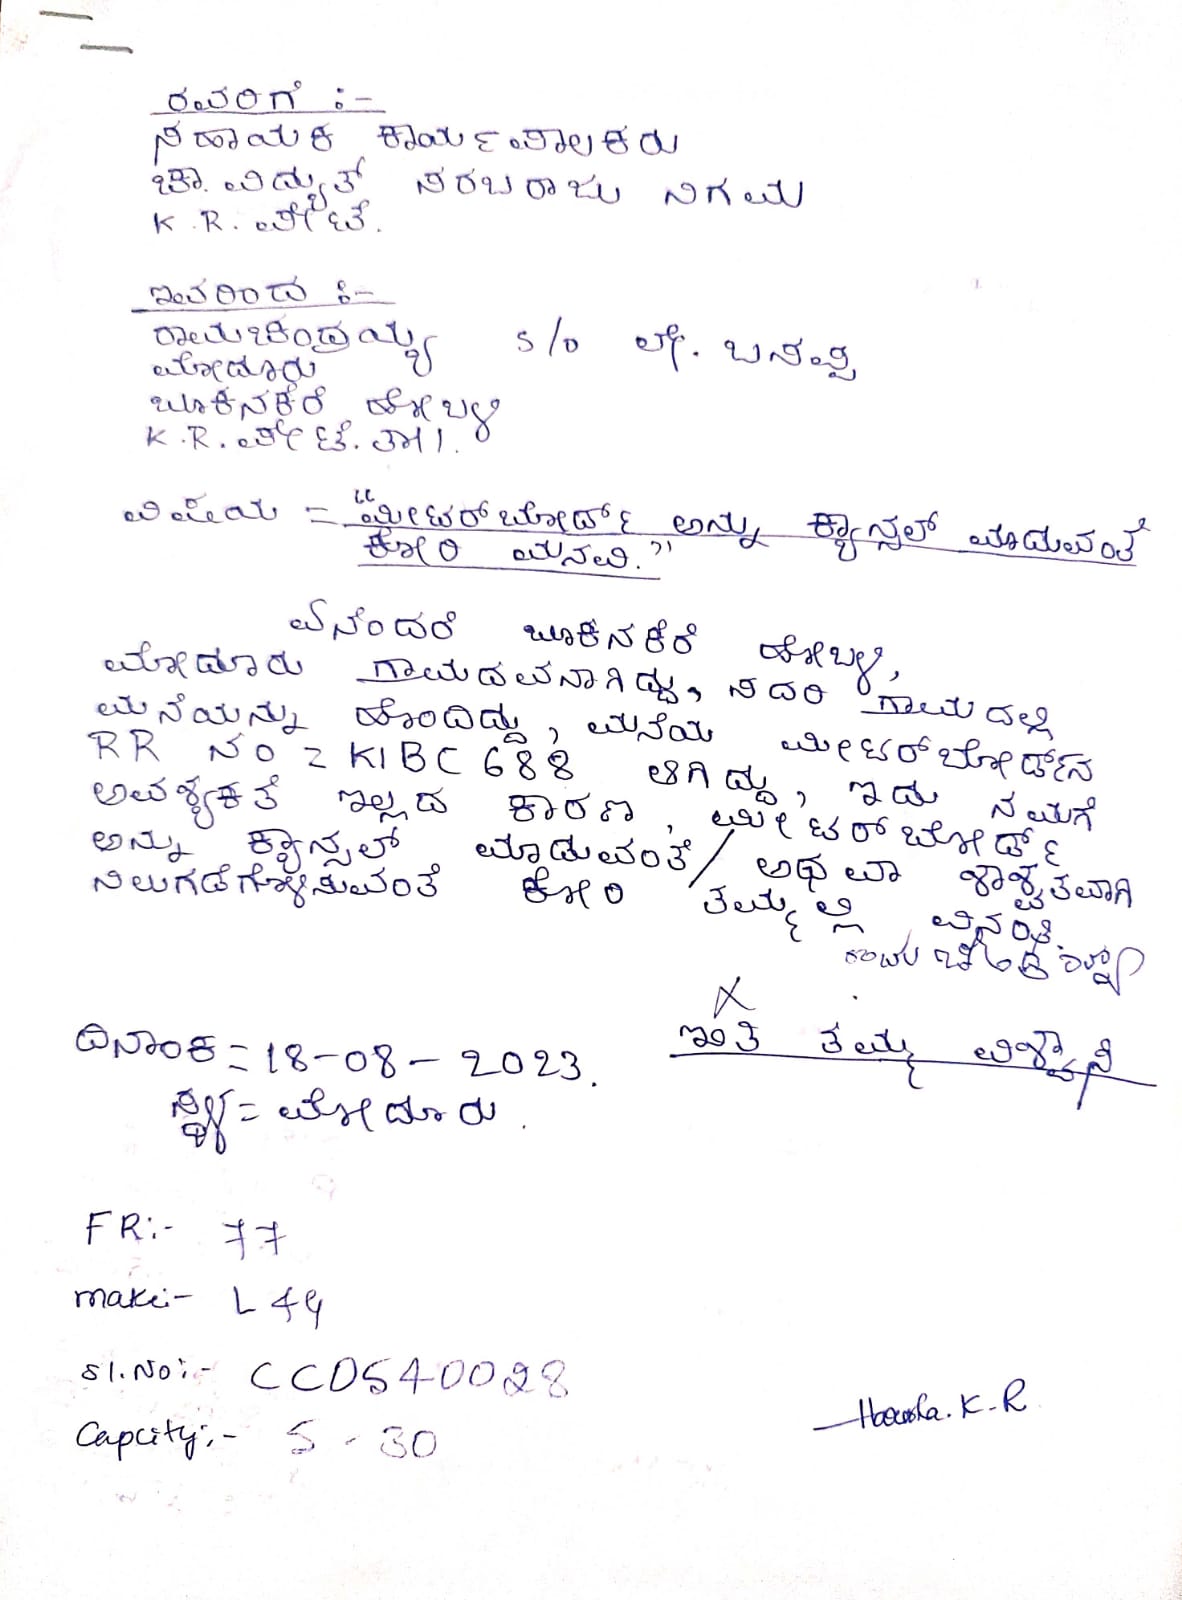 ರವರಿಗೆ :-
ಸಹಾಯಕ ಕಾರ್ಯಪಾಲಕರು
ಚಾ. ವಿದ್ಯುತ್ ಸರಬರಾಜು ನಿಗಮ
K.R. ಪೇಟೆ.
ಇವರಿಂದ :-
ರಾಮಚಂದ್ರಯ್ಯ s/o ಲೇ. ಬಸಪ್ಪ
ಮೋದೂರು
ಬೂಕನಕೆರೆ ಹೋಬಳಿ
K.R. ಪೇಟೆ. ತಾ।.
ವಿಷಯ = "ಮೀಟರ್ ಬೋರ್ಡ್ ಅನ್ನು ಕ್ಯಾನ್ಸಲ್ ಮಾಡುವಂತೆ
ಕೋರಿ ಮನವಿ."
ಏನೆಂದರೆ ಬೂಕನಕೆರೆ ಹೋಬಳಿ,
ಮೋದೂರು ಗ್ರಾಮದವನಾಗಿದ್ದು, ಸದರಿ ಗ್ರಾಮದಲ್ಲಿ
ಮನೆಯನ್ನು ಹೊಂದಿದ್ದು, ಮನೆಯ ಮೀಟರ್ ಬೋರ್ಡ್‌ನ
RR NO = KIBC 688 ಆಗಿದ್ದು, ಇದು ನಮಗೆ
ಅವಶ್ಯಕತೆ ಇಲ್ಲದ ಕಾರಣ, ಮೀಟರ್ ಬೋರ್ಡ್
ಅನ್ನು ಕ್ಯಾನ್ಸಲ್ ಮಾಡುವಂತೆ/ ಅಥವಾ ಶಾಶ್ವತವಾಗಿ
ನಿಲುಗಡೆಗೊಳಿಸುವಂತೆ ಕೋರಿ ತಮ್ಮಲ್ಲಿ ವಿನಂತಿ.
X
ಇಂತಿ ತಮ್ಮ ವಿಶ್ವಾಸಿ
ದಿನಾಂಕ = 18-08-2023.
ಸ್ಥಳ = ಮೋದೂರು.
FR:- 77
make:- L44
sl.No:- CCD540028
Capcity:- 5 - 30
Harsha.K.R